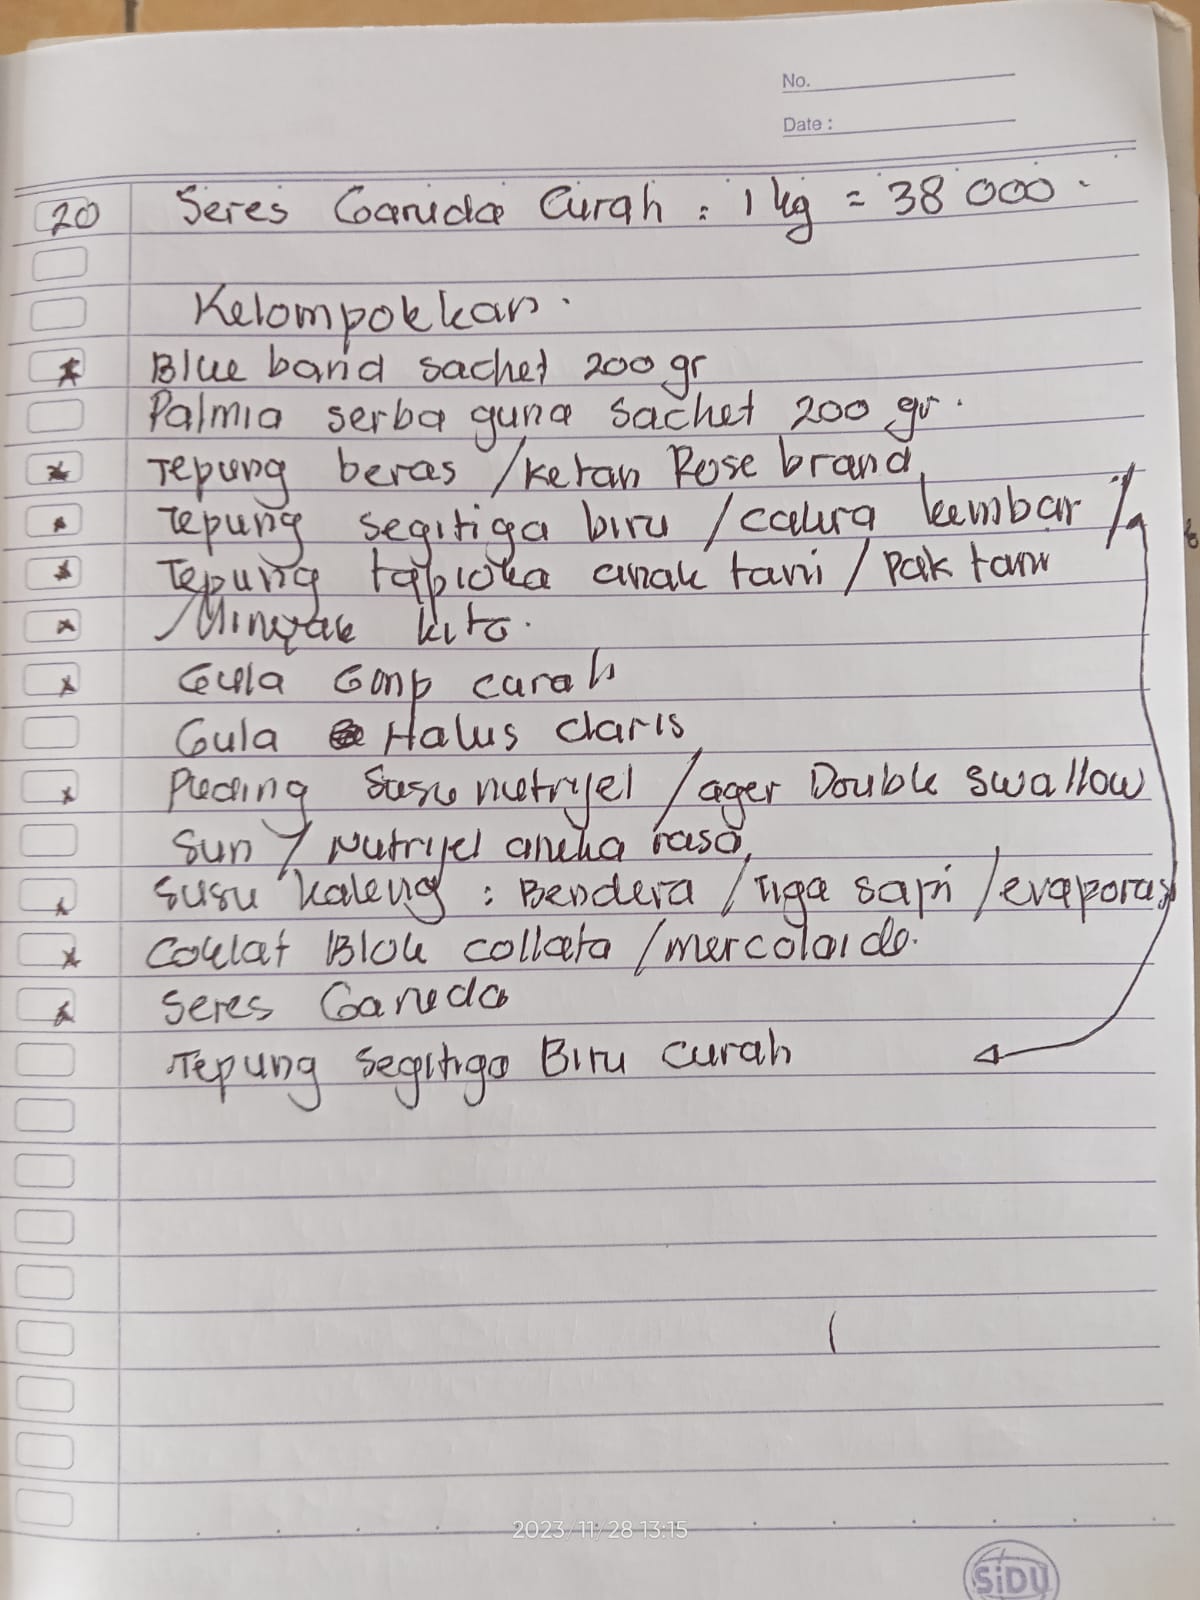 No.
Date :
20 Seres Garuda Curah : 1 kg = 38 000.
Kelompokkan.
Blue band sachet 200 gr
Palmia serba guna sachet 200 gr.
Tepung beras / ketan Rose brand
Tepung segitiga biru / cakra kembar /
Tepung tapioka anak tani / Pak tani
Minyak kita.
Gula Gmp curah
Gula Halus claris
Puding Susu nutrijel / ager Double swallow
Sun / Nutrijel aneka rasa
Susu kaleng : Bendera / Tiga sapi / evaporasi
Coklat Blok collata / mercolado.
Seres Garuda
Tepung Segitiga Biru Curah
2023/11/28 13:15
SiDU